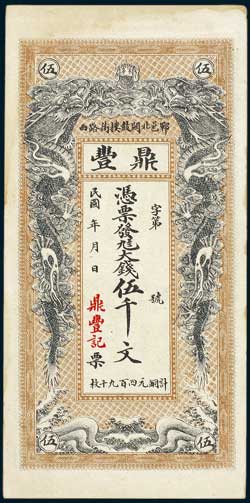 伍
伍
邑北關鼓樓街路西
鼎豐
字第 號
憑票發大錢伍千文
民國 年 月 日
鼎豐記票
計銅元四百九十枚
伍
伍